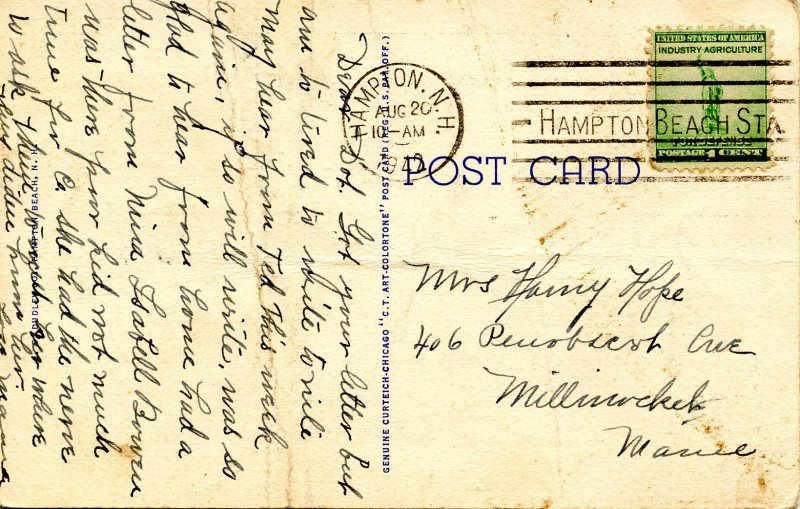 Dear Dot. Got your letter but
am to tired to write to nite
may hear from Ted this week
again, if so will write, was so
glad to hear from home had a
letter from Nina Isabell Bowen
was there Junior hid not much
time for C. she had the nerve
to ask them to meet her where
they didnt hum her.
Love Mama
DUDLEY HAMPTON BEACH, N. H.
GENUINE CURTEICH-CHICAGO "C.T. ART-COLORTONE" POST CARD (REG. U.S. PAT. OFF.)
HAMPTON, N.H.
AUG 20
10-AM
1942
HAMPTON BEACH STA
UNITED STATES OF AMERICA
INDUSTRY·AGRICULTURE
FOR DEFENSE
POSTAGE 1 CENT
POST CARD
Mrs Harry Hope
406 Penobscot Ave
Millinocket
Maine